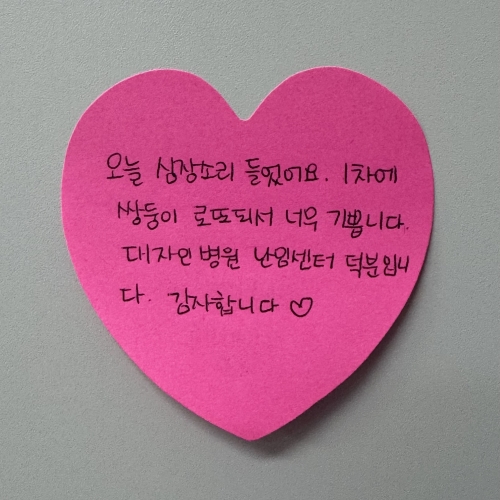 오늘 심장소리 들었어요. 1차에
쌍둥이 로또되서 너무 기쁩니다.
대자인병원 난임센터 덕분입니
다. 감사합니다 ♡